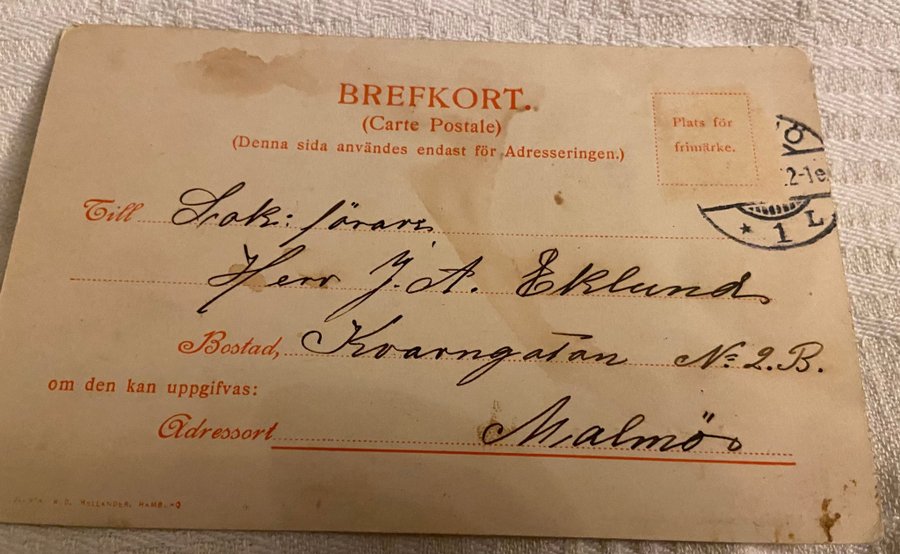 BREFKORT.
(Carte Postale)
(Denna sida användes endast för Adresseringen.)
Plats för
frimärke.
2-1e
* 1 L
Till Lok: förare
Herr J. A. Eklund
Bostad, Kvarngatan No 2. B.
om den kan uppgifvas:
Adressort Malmö
HOLLANDER, HAMB.